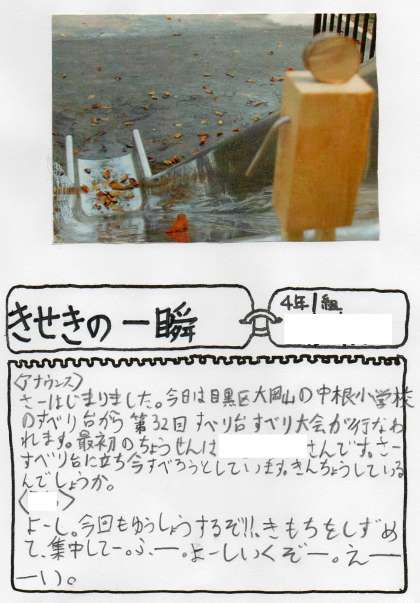 きせきの一瞬
4年1組
〈アナウンス〉
さーはじまりました。今日は目黒区大岡山の中根小学校
のすべり台から第32回すべり台すべり大会が行なわ
れます。最初のちょうせんは さんです。さー
すべり台に立ち今すべろうとしています。きんちょうしている
んでしょうか。
〈 〉
よーし。今回もゆうしょうするぞ!!、きもちをしずめ
て、集中してー。ふー。よーしいくぞー。えー
ーい。